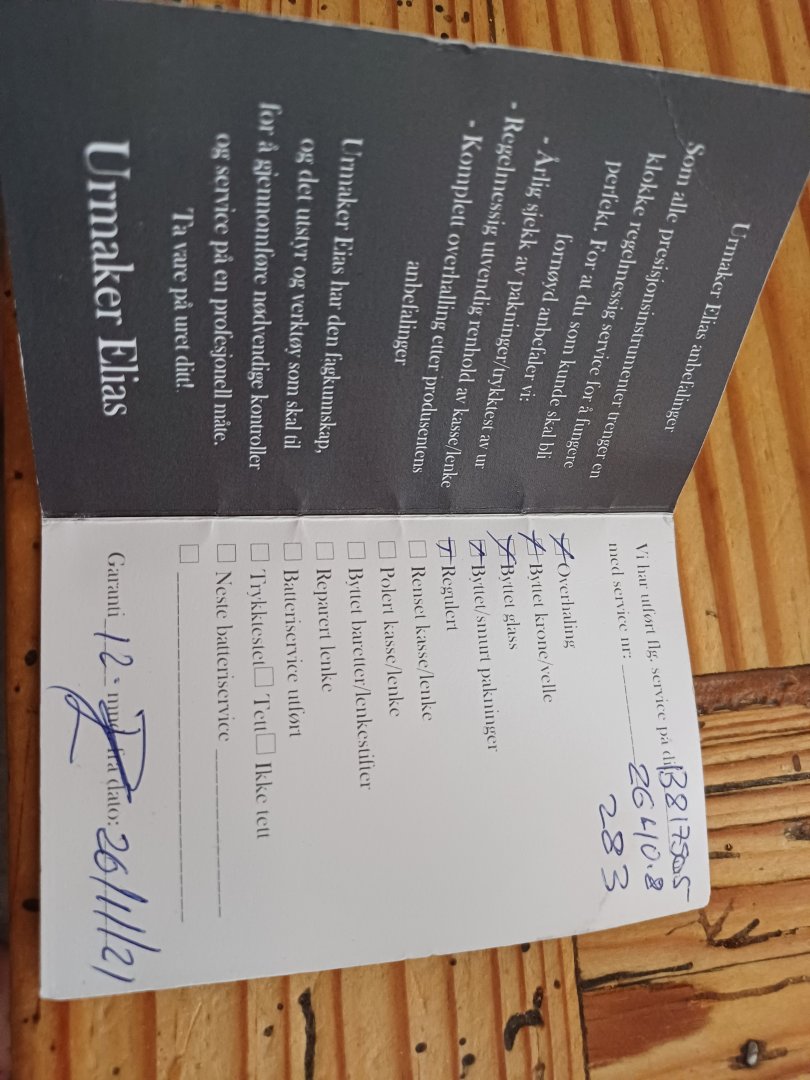 Urmaker Elias anbefalinger
Som alle presisjonsinstrumenter trenger en
klokke regelmessig service for å fungere
perfekt. For at du som kunde skal bli
fornøyd anbefaler vi:
- Årlig sjekk av pakninger/trykktest av ur
- Regelmessig utvendig renhold av kasse/lenke
- Komplett overhalling etter produsentens
anbefalinger
Urmaker Elias har den fagkunnskap,
og det utstyr og verktøy som skal til
for å gjennomføre nødvendige kontroller
og service på en profesjonell måte.
Ta vare på uret ditt!
Urmaker Elias
Vi har utført flg. service på
med service nr:
283
Overhaling
Byttet krone/velle
Byttet glass
Byttet/smurt pakninger
Regulert
Renset kasse/lenke
Polert kasse/lenke
Byttet baretter/lenkestifter
Reparert lenke
Batteriservice utført
Trykktestet Tett Ikke tett
Neste batteriservice
Garanti 12 mnd fra dato: 26/11/21